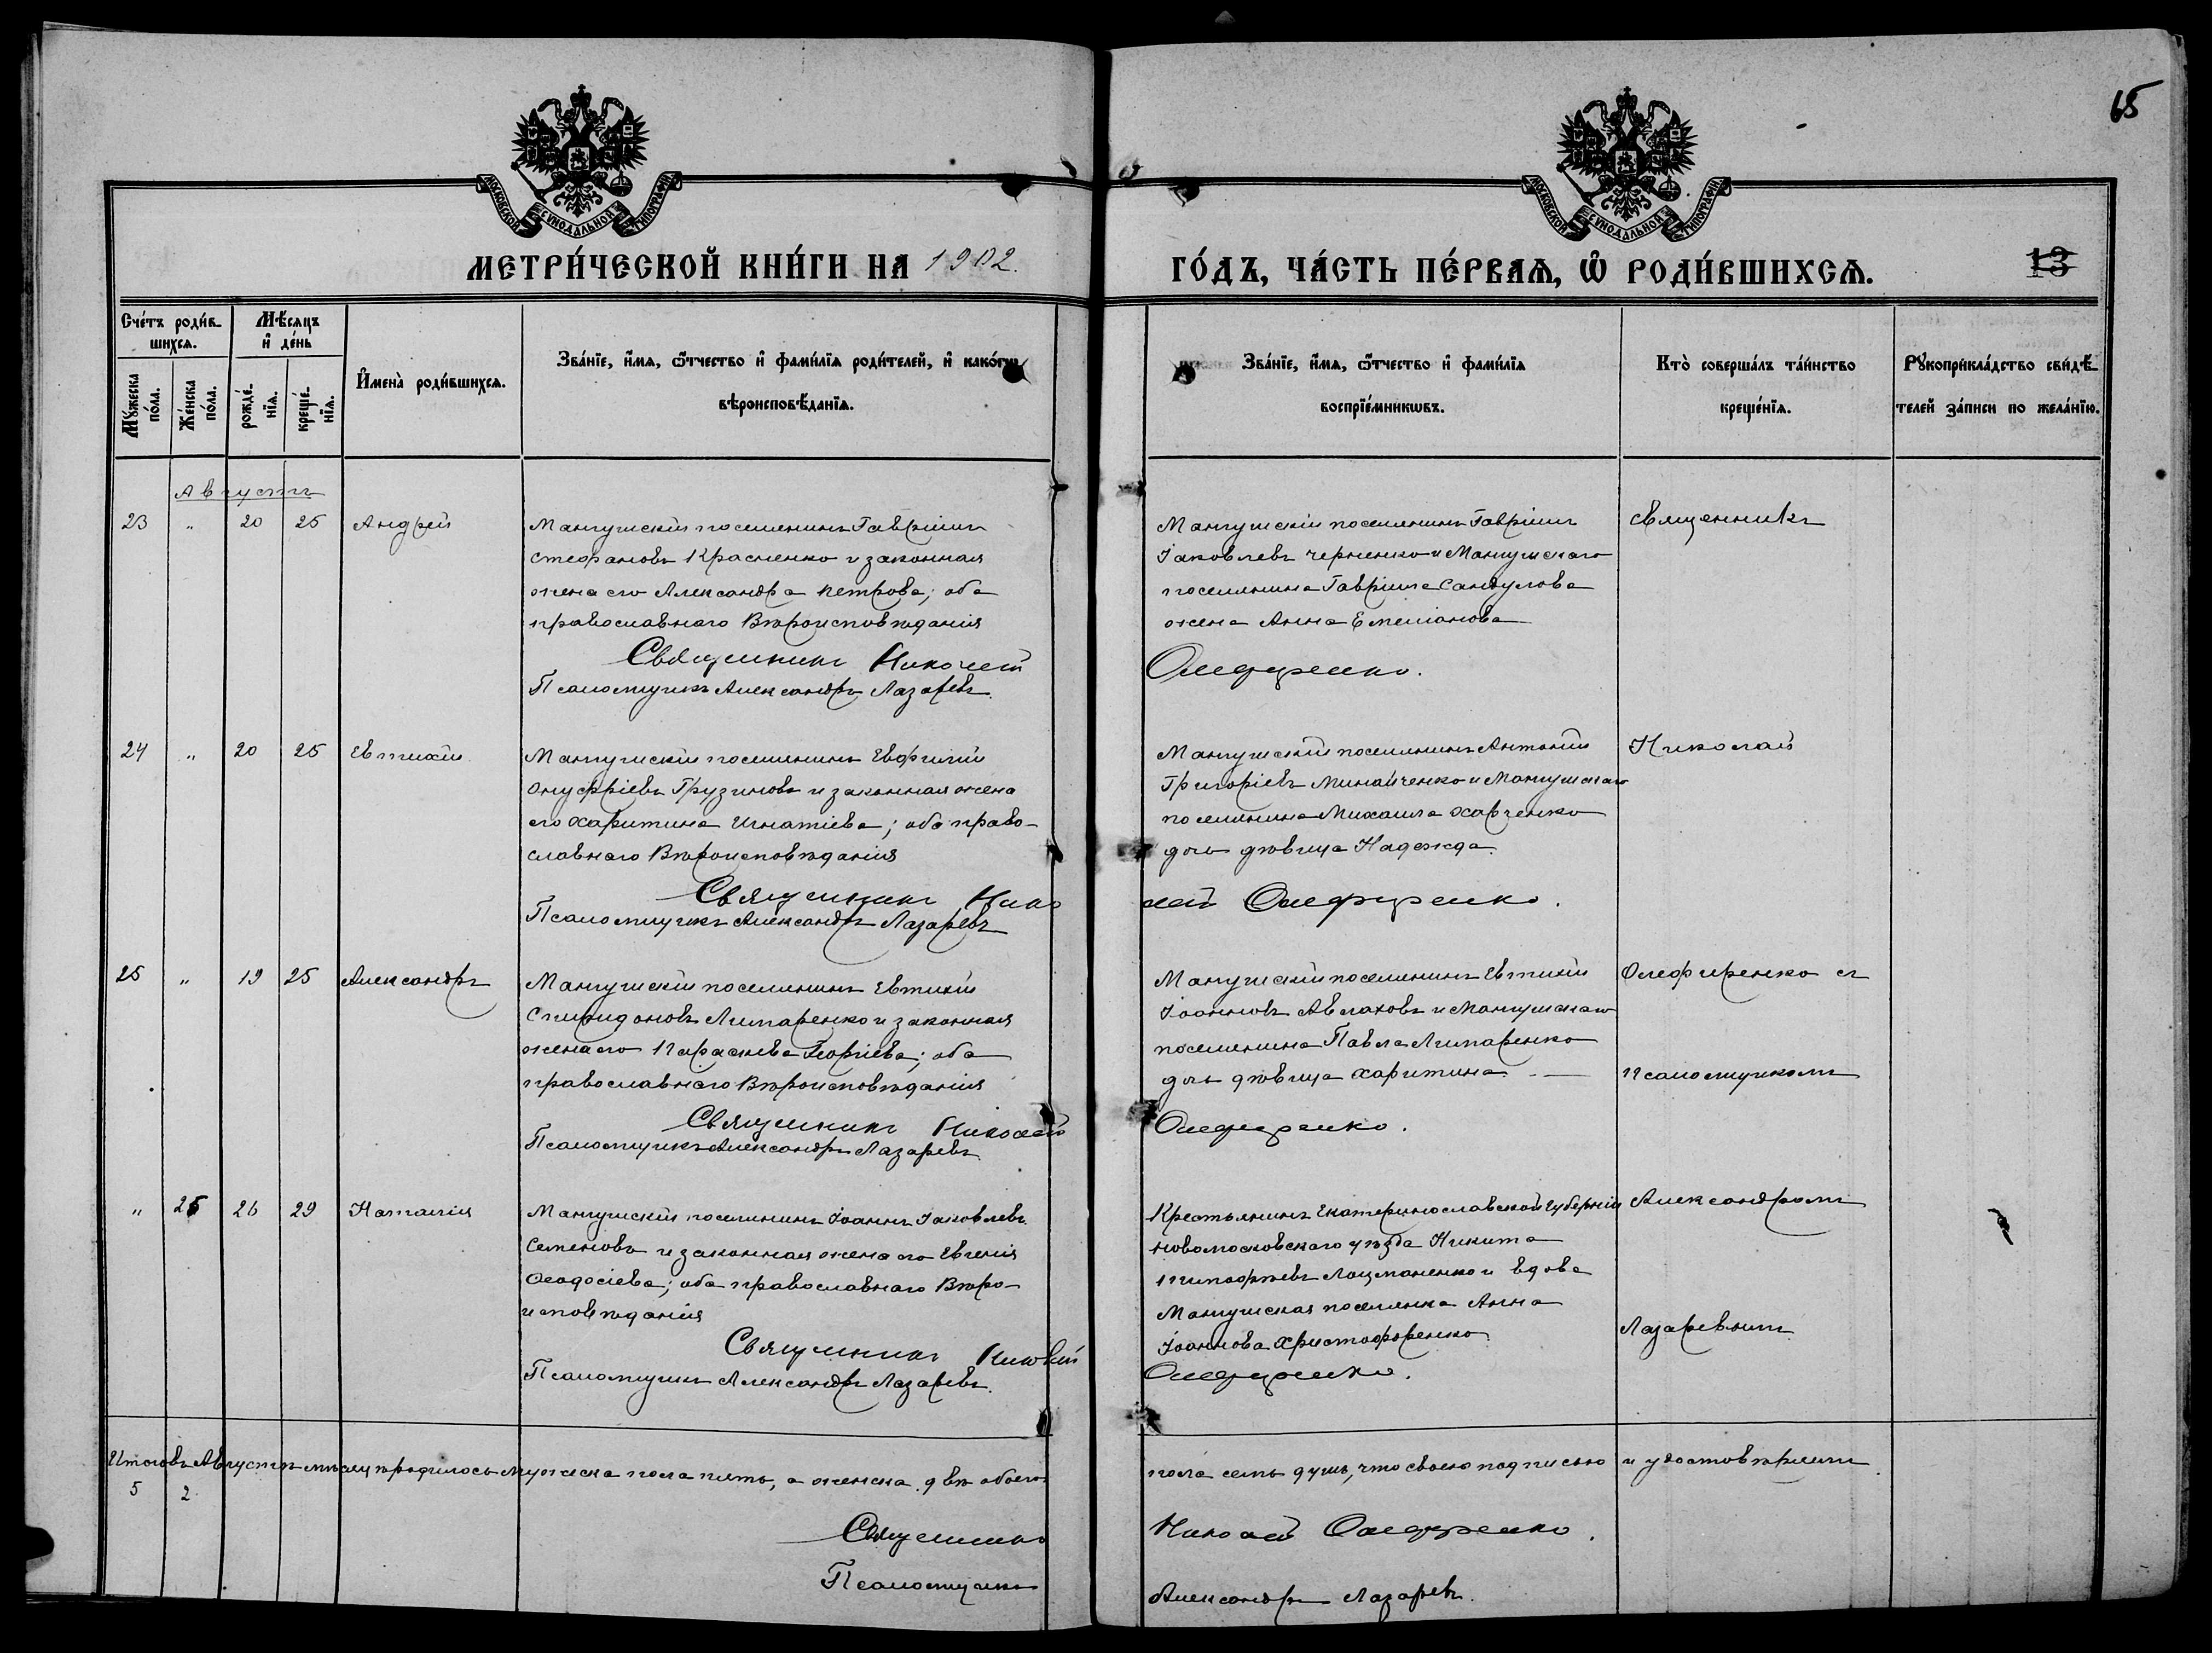 65
МОСКОВСКОЙ СѴНОДАЛЬНОЙ ТИПОГРАФІИ
МОСКОВСКОЙ СѴНОДАЛЬНОЙ ТИПОГРАФІИ
МЕТРИ́ЧЕСКОЙ КНИ́ГИ НА 1902.
ГО́ДЪ, ЧА́СТЬ ПЕ́РВАѦ, Ѽ РОДИ́ВШИХСѦ.
13
Сче́тъ роди́в-
шихсѧ.
Мѣ́сѧцъ
и҆ де́нь
Мꙋ́жеска
по́ла.
Же́нска
по́ла.
рожде́-
нїѧ.
креще́-
нїѧ.
И҆мена̀ роди́вшихсѧ.
Зва́нїе, и҆́мѧ, ѻ҆́тчество и҆ фами́лїѧ роди́телей, и҆ како́гѡ
вѣроисповѣ́данїѧ.
Зва́нїе, и҆́мѧ, ѻ҆́тчество и҆ фами́лїѧ
воспрїе́мникѡвъ.
Кто̀ соверша́лъ та́инство
креще́нїѧ.
Рꙋкоприкла́дство свидѣ́-
телей за́писи по жела́нїю.
Августъ
23 " 20 25 Андрей
Мангушскій поселянинъ Гавріилъ
Стефановъ Красненко и законная
жена его Александра Петрова; оба
православнаго Вѣроисповѣданія
Священникъ Николай
Псаломщикъ Александръ Лазаревъ.
Мангушскій поселянинъ Гавріилъ
Іаковлевъ Черненко и Мангушскаго
поселянина Гавріила Сандулова
жена Анна Емеліанова
Олефиренко.
Священникъ
24 " 20 25 Евтихій
Мангушскій поселянинъ Евфимій
Онуфріевъ Грузиновъ и законная жена
его Харитина Игнатіева; оба право-
славнаго Вѣроисповѣданія
Священникъ Нико
Псаломщикъ Александръ Лазаревъ
Мангушскій поселянинъ Антоній
Григоріевъ Минайченко и Мангушскаго
поселянина Михаила Харченко
дочь дѣвица Надежда.
лай Олефиренко.
Николай
25 " 19 25 Александръ
Мангушскій поселянинъ Евтихій
Спиридоновъ Липаренко и законная
жена его Параскева Георгіева; оба
православнаго Вѣроисповѣданія
Священникъ Николай
Псаломщикъ Александръ Лазаревъ
Мангушскій поселянинъ Евтихій
Іоанновъ Авлаховъ и Мангушскаго
поселянина Павла Липаренко
дочь дѣвица Харитина.
Олефиренко.
Олефиренко съ
псаломщикомъ
" 25 26 29 Наталія
Мангушскій поселянинъ Іоаннъ Іаковлевъ
Семеновъ и законная жена его Евгенія
Ѳеодосіева; оба православнаго Вѣро-
исповѣданія
Священникъ Николай
Псаломщикъ Александръ Лазаревъ.
Крестьянинъ Екатеринославской губерніи
Новомосковскаго уѣзда Никита
Тимофѣевъ Лоцманенко и вдова
Мангушская поселянка Анна
Іоаннова Христофоренко
Олефиренко.
Александромъ
Лазаревымъ
Итого въ Августѣ мѣсяцѣ родилось мужеска пола пять, а женска двѣ обоего
5 2
пола семь душъ, что своею подписью и удостовѣряемъ
Священникъ
Николай Олефиренко.
Псаломщикъ
Александръ Лазаревъ.